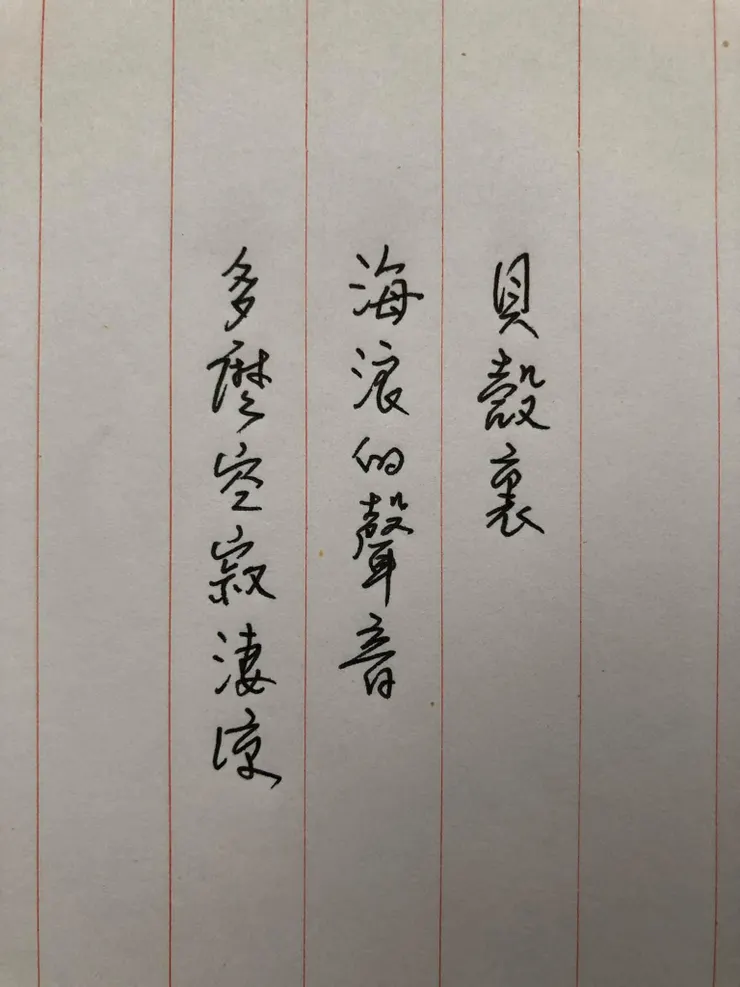 貝殼裏
海浪的聲音
多麼空寂淒涼